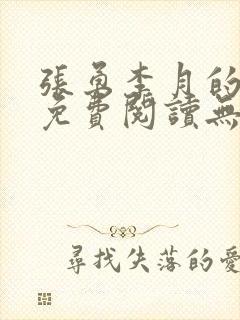 張勇李月的
免費閱讀無
尋找失落的愛